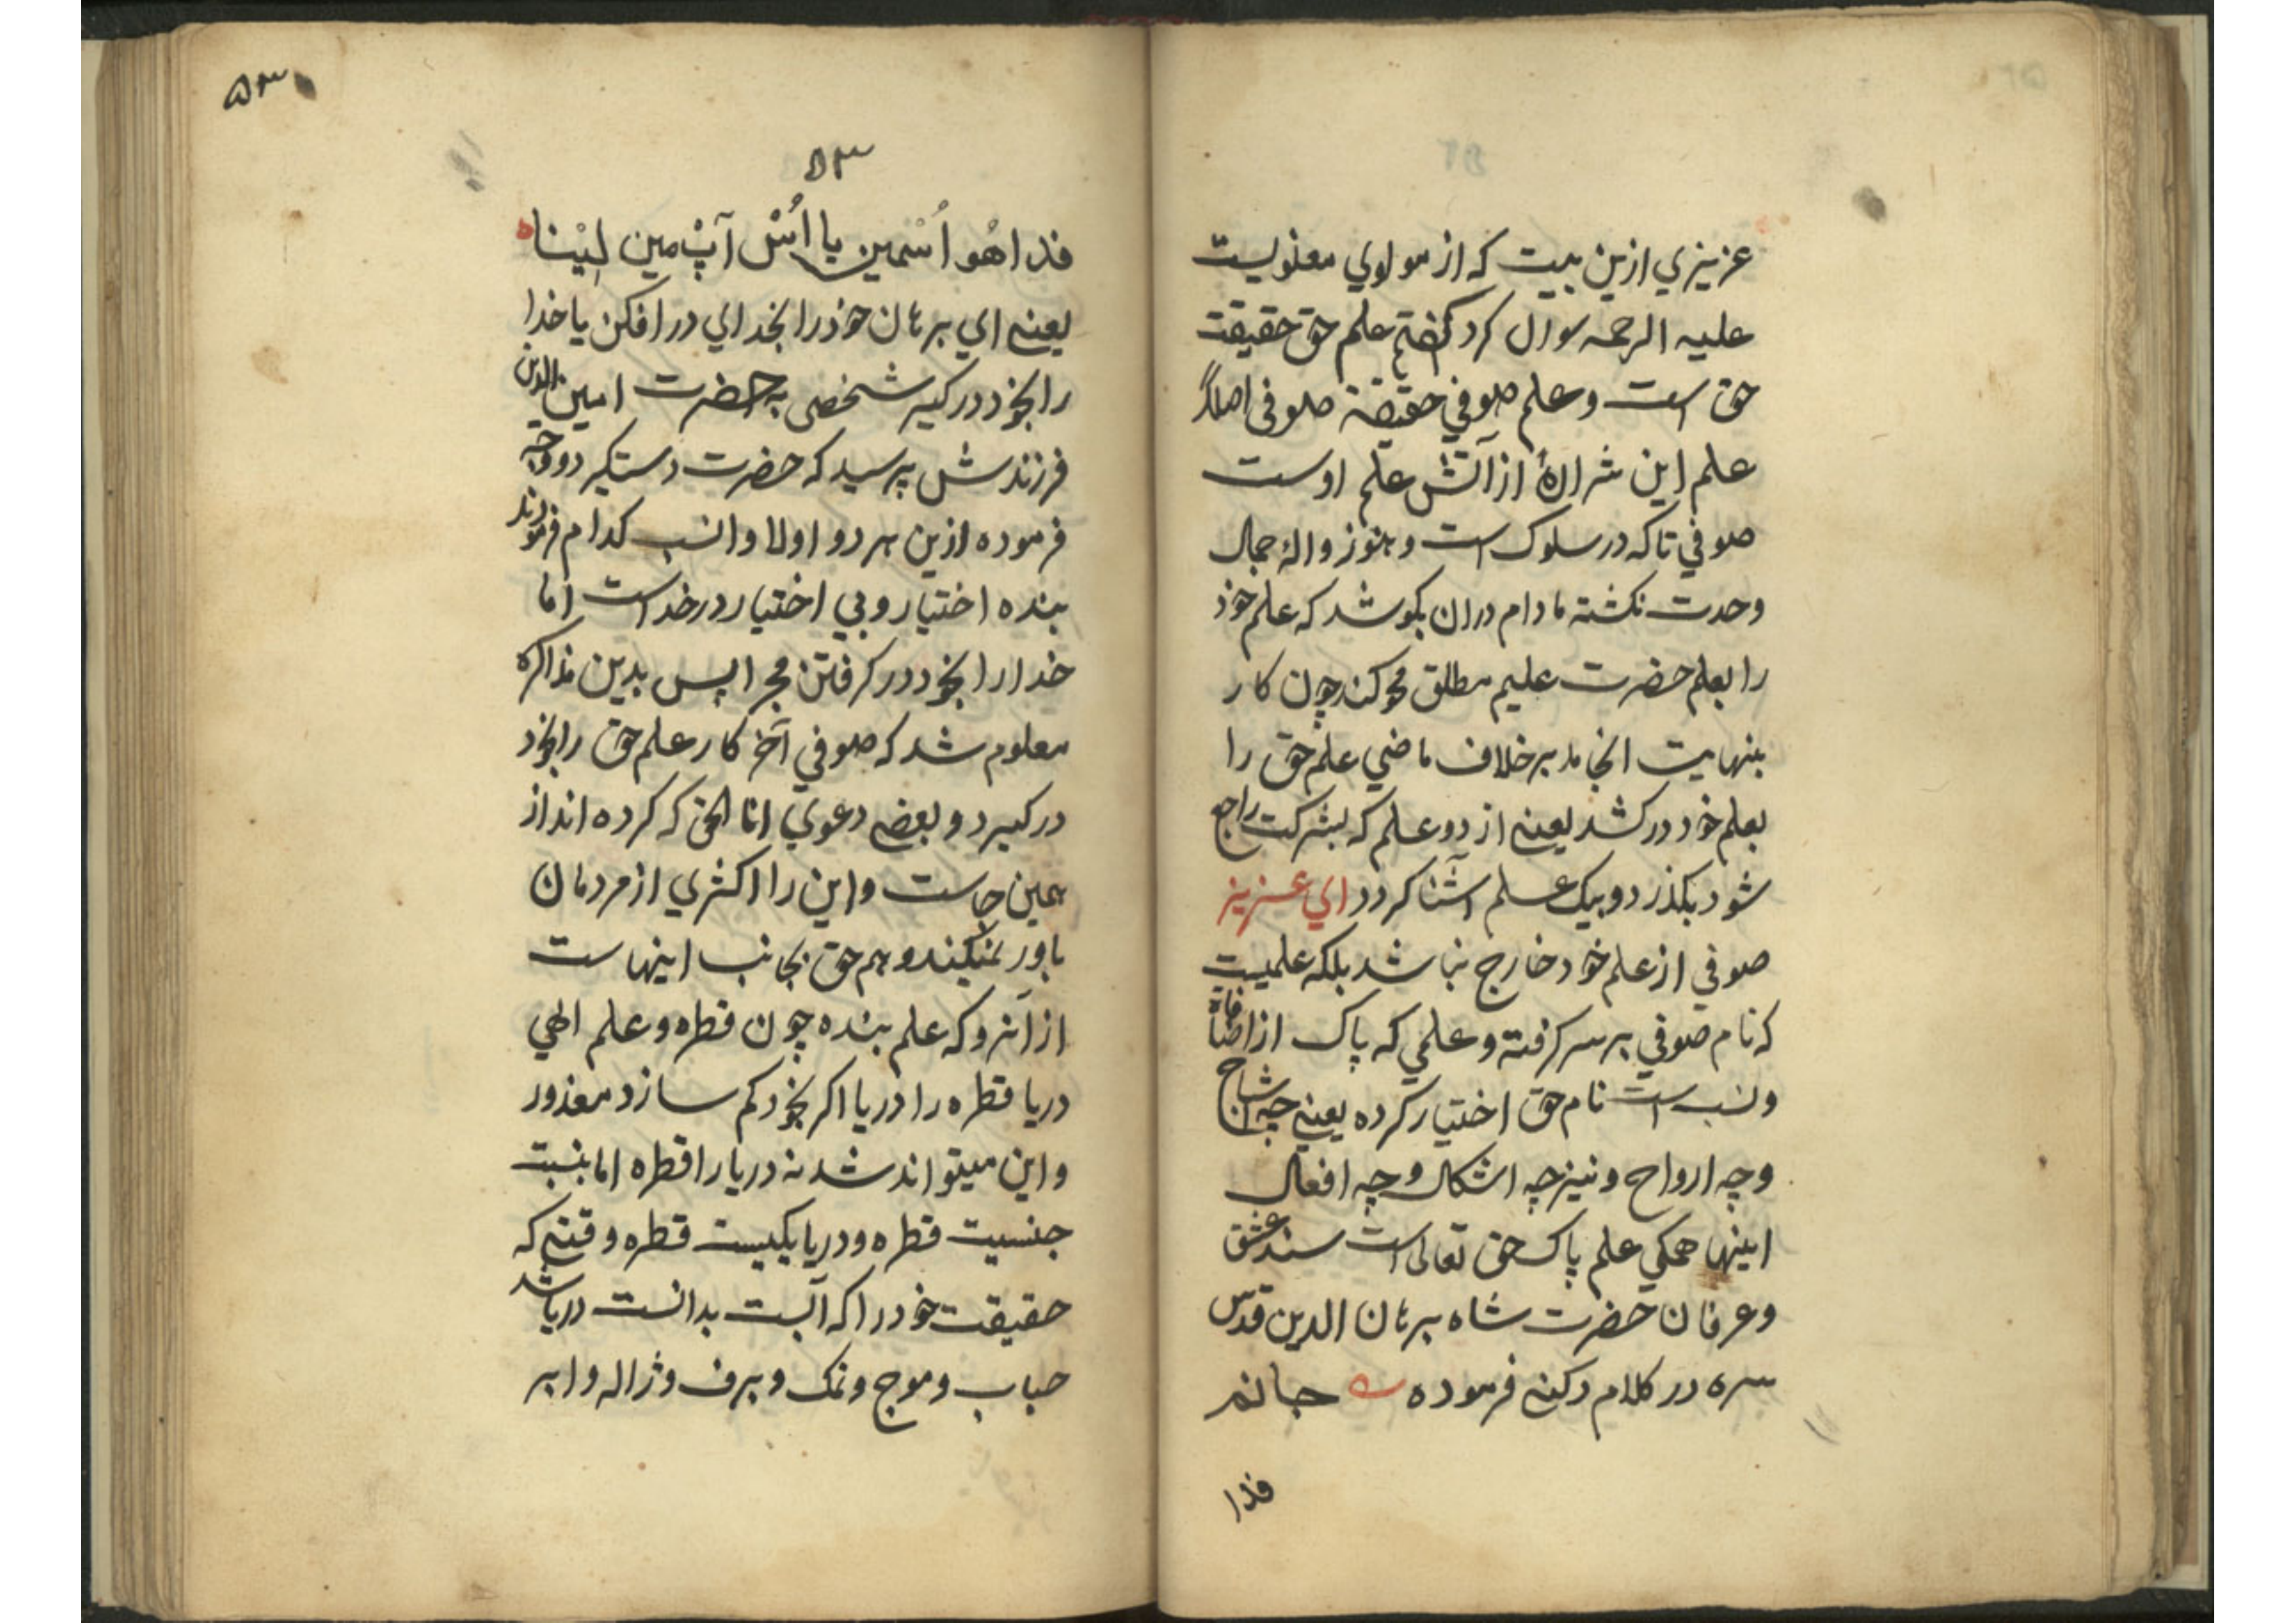 عزیزي ازین بیت که از مولوي معنویست
علیه الرحمه سوال کرد گفتم علم حق حقیقت
حق است و علم صوفي حقیقة صوفي اصلاً
علم این شرارهٔ از آتش علم اوست
صوفي تا که در سلوک است و هنوز والهٔ جمال
وحدت نکشته مادام دران بکوشد که علم خود
را بعلم حضرت علیم مطلق محو کند چون کار
بنهایت انجامد برخلاف ماضي علم حق را
بعلم خود در کشد یعنے از دو علم که بشرکت راجع
شود بکذرد و بیک علم آشنا کردد اي عزیز
صوفي از علم خود خارج نباشد بلکه علمیست
که نام صوفي بر سر کرفته و علمي که پاک از اضافات
و نسب است نام حق اختیار کرده یعنے چه اشباح
و چه ارواح و نیز چه اشکال و چه افعال
اینها همکي علم پاک حق تعالی است سند عشق
و عرفان حضرت شاه برهان الدین قدس
سره در کلام دکنے فرموده جانم
فدا
۵۳
۵۳
فدا هُو اُسْمین یا اُسْ آپْ مین لینا
یعنے اي برهان خود را بخداي در افکن یا خدا
را بخود در کیر شخصي به حضرت امین الدین
فرزندش پرسید که حضرت دستکیر دو وجه
فرموده ازین هر دو اولا و انسب کدام فرمودند
بنده اختیار و بي اختیار در خداست اما
خدا را بخود در کرفتن مجرا پس بدین مذاکره
معلوم شد که صوفي آخر کار علم حق را بخود
در کیرد و بعضے دعوي انا الحق که کرده اند از
همین جاست و این را اکثري از مردمان
باور نمیکنند و هم حق بجانب اینهاست
از آنرو که علم بنده چون قطره و علم الهي
دریا قطره را دریا اکر بخود کم سازد معذور
و این میتواند شد نه دریا را قطره اما بنسبت
جنسیت قطره و دریا یکیست قطره وقتے که
حقیقت خود را که آبست بدانست دریا شد
حباب و موج و نمک و برف و ژاله و ابر